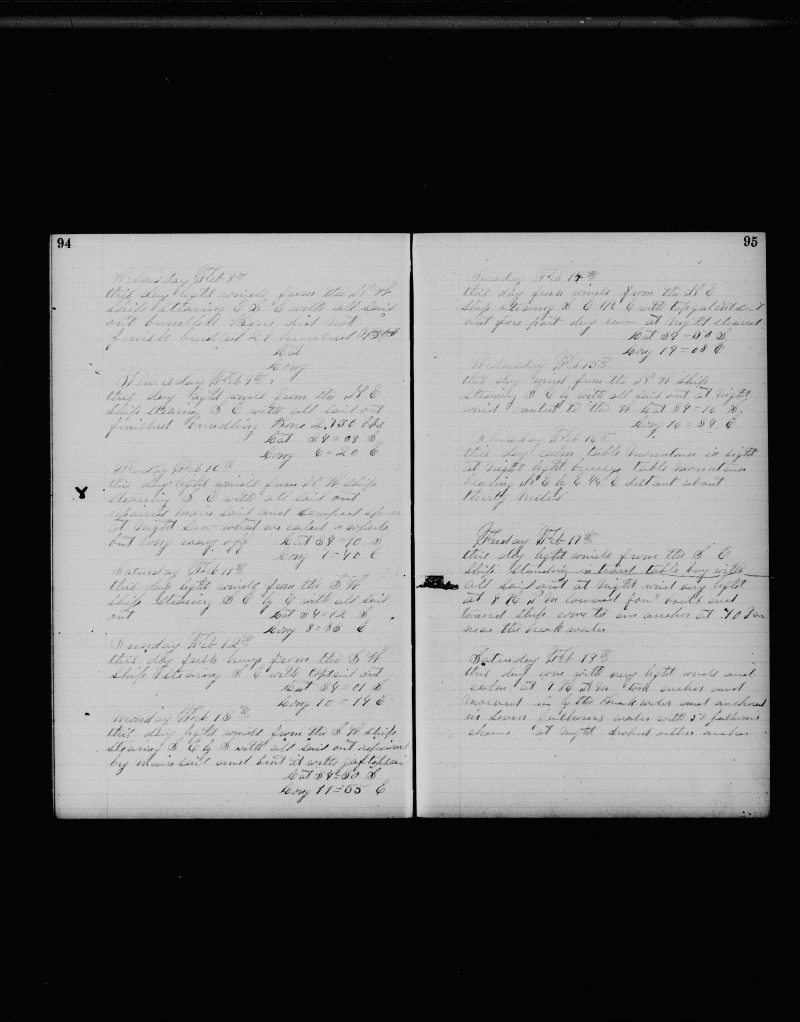 94
Wednesday Feb 8th
this day light winds from the N W
ship steering E S E with all sail
out bundled Bone did not
finish bundled 21 hundred
Lat
Long
Thursday Feb 9th
this day light winds from the N E
ship steering S E with all sail out
finished bundling Bone 2,150 lbs
Lat 34=03 S
Long 6=20 E
Friday Feb 10th
this day light winds from N W ship
steering S E with all sail out
repaired main sail and scraped spars
at night saw what we called a whale
but long way off Lat 34=10 S
Long 7=40 E
Saturday Feb 11th
this day light winds from the S W
ship steering S E by E with all sail
out Lat 34=12 S
Long 8=55 E
Sunday Feb 12th
this day fresh from the S W
ship steering S E with topsail out
Lat 34=01 S
Long 10=14 E
Monday Feb 13th
this day light winds from the S W ship
steering S E by S with all sail out repaired
main sail and bent it with gaftopsail
Lat 34=30 S
Long 11=55 E
95
Tuesday Feb 14th
this day fresh winds from the N E
ship steering S E 1/2 E with topgalentsail
out fore part day at night steared
Lat 34=50 S
Long 14=08 E
Wednesday Feb 15th
this day wind from the N W ship
steering S E by with all sail out at night
wind canted to the W Lat 34=16 S.
Long 16=34 E
Thursday Feb 16th
this day calm table mountain in sight
at night light breeze table mountain
bearing N E by E 1/4 E distant about
thirty miles
Friday Feb 17th
this day light winds from the S E
ship standing in toward table bay with
all sail out at night wind very light
at 8 H P M lowered four boats and
towed ship come to an anchor at 10 Pm
near the break water
Saturday Feb 18th
this day com with very light winds and
calm at 1 H A M took anchor and
moved in by the break water and anchored
in seven fathoms water with 50 fathoms
chain at night droped other anchor